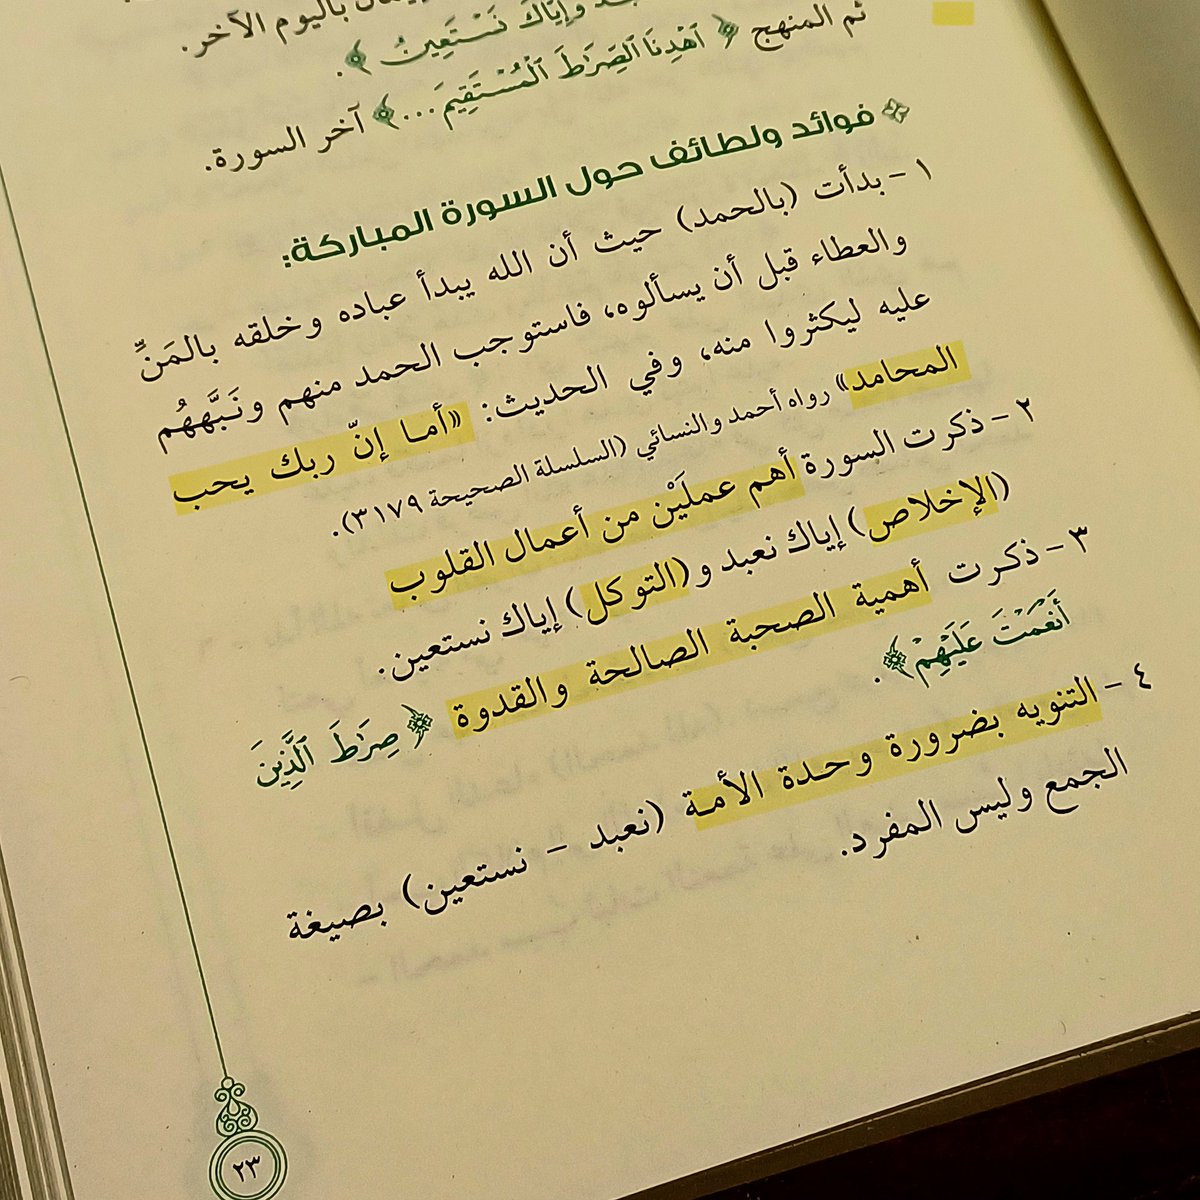 باليوم الآخر.
وَإِيَّاكَ نَسْتَعِينُ ﴾.
ثم المنهج ﴿ ٱهْدِنَا ٱلصِّرَٰطَ ٱلْمُسْتَقِيمَ...﴾ آخر السورة.
فوائد ولطائف حول السورة المباركة:
١ - بدأت (بالحمد) حيث أن الله يبدأ عباده وخلقه بالمَنِّ
والعطاء قبل أن يسألوه، فاستوجب الحمد منهم ونَبَّهَهُم
عليه ليكثروا منه، وفي الحديث: «أما إنّ ربك يحب
المحامد» رواه أحمد والنسائي (السلسلة الصحيحة ٣١٧٩).
٢ - ذكرت السورة أهم عملَيْن من أعمال القلوب
(الإخلاص) إياك نعبد و(التوكل) إياك نستعين.
٣ - ذكرت أهمية الصحبة الصالحة والقدوة ﴿ صِرَٰطَ ٱلَّذِينَ
أَنْعَمْتَ عَلَيْهِمْ﴾.
٤ - التنويه بضرورة وحدة الأمة (نعبد - نستعين) بصيغة
الجمع وليس المفرد.
٢٣